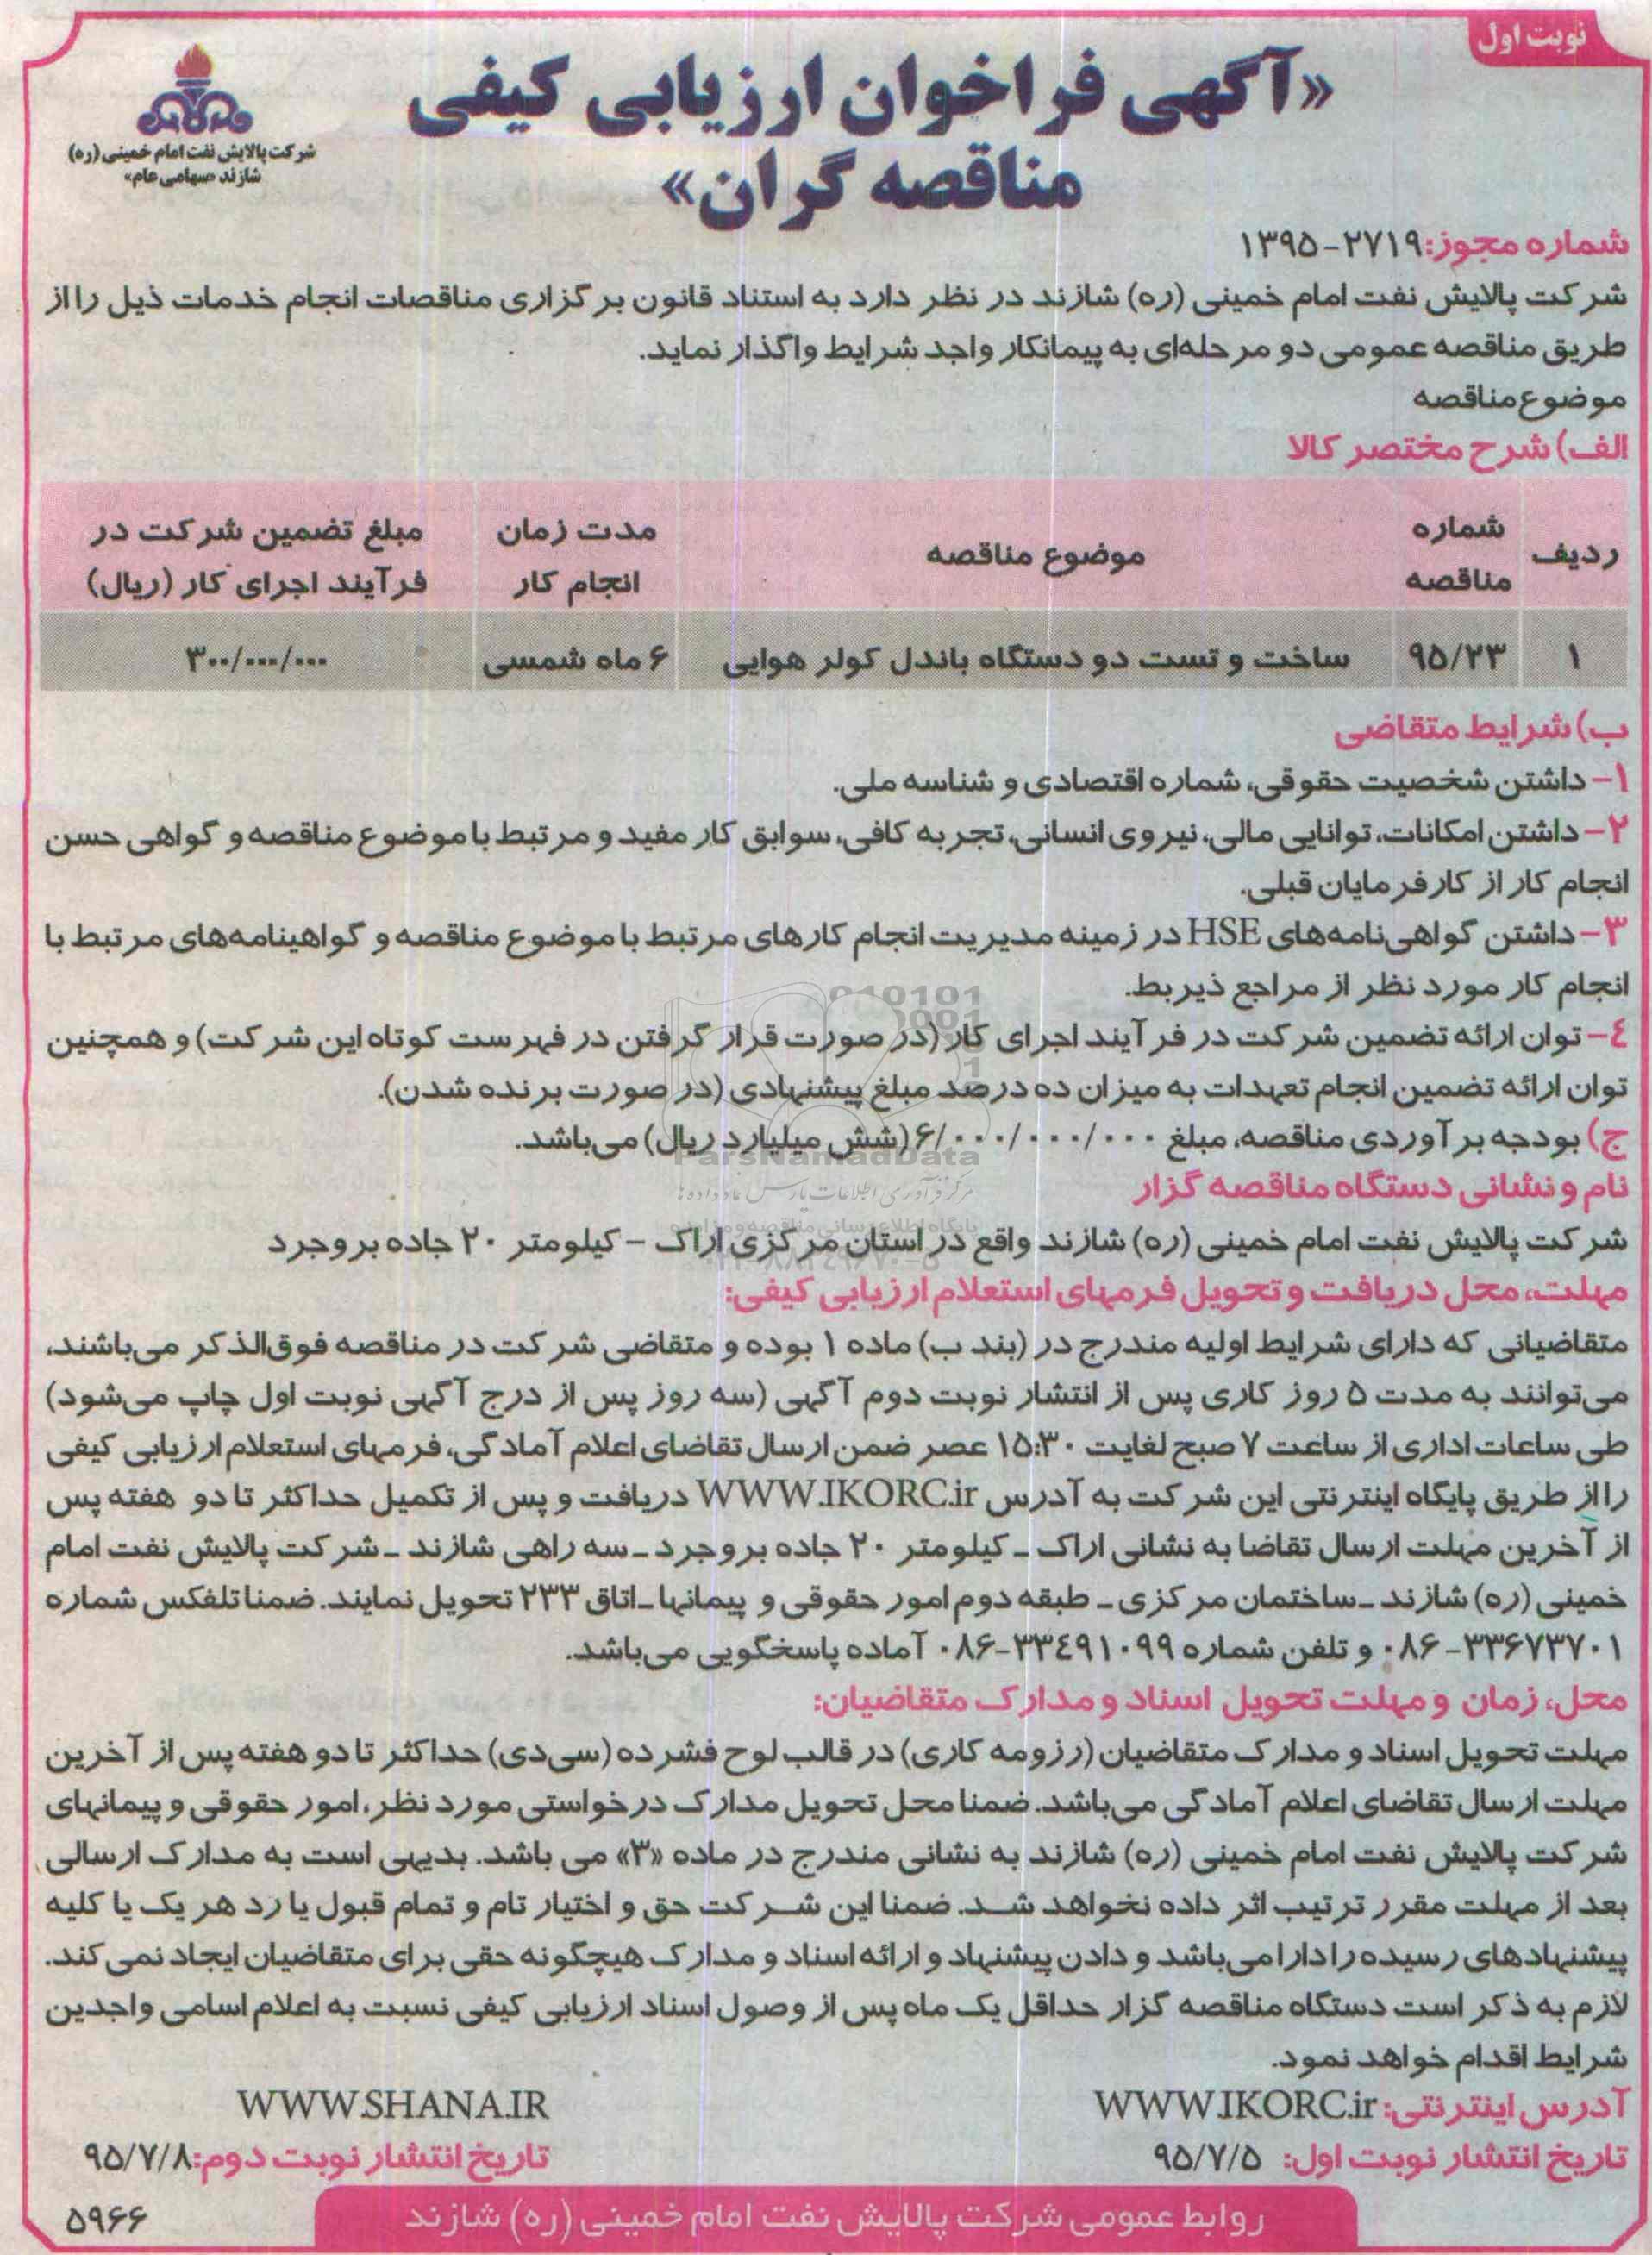 نوبت اول
«آگهی فراخوان ارزیابی کیفی
مناقصه گران»
شرکت پالایش نفت امام خمینی (ره)
شازند «سهامی عام»
شماره مجوز: ۲۷۱۹-۱۳۹۵
شرکت پالایش نفت امام خمینی (ره) شازند در نظر دارد به استناد قانون برگزاری مناقصات انجام خدمات ذیل را از
طریق مناقصه عمومی دو مرحله‌ای به پیمانکار واجد شرایط واگذار نماید.
موضوع مناقصه
الف) شرح مختصر کالا
ردیف	شماره مناقصه	موضوع مناقصه	مدت زمان انجام کار	مبلغ تضمین شرکت در فرآیند اجرای کار (ریال)
۱	۹۵/۲۳	ساخت و تست دو دستگاه باندل کولر هوایی	۶ ماه شمسی	۳۰۰/۰۰۰/۰۰۰
ب) شرایط متقاضی
۱- داشتن شخصیت حقوقی، شماره اقتصادی و شناسه ملی.
۲- داشتن امکانات، توانایی مالی، نیروی انسانی، تجربه کافی، سوابق کار مفید و مرتبط با موضوع مناقصه و گواهی حسن
انجام کار از کارفرمایان قبلی.
۳- داشتن گواهی‌نامه‌های HSE در زمینه مدیریت انجام کارهای مرتبط با موضوع مناقصه و گواهینامه‌های مرتبط با
انجام کار مورد نظر از مراجع ذیربط.
۴- توان ارائه تضمین شرکت در فرآیند اجرای کار (در صورت قرار گرفتن در فهرست کوتاه این شرکت) و همچنین
توان ارائه تضمین انجام تعهدات به میزان ده درصد مبلغ پیشنهادی (در صورت برنده شدن).
ج) بودجه برآوردی مناقصه، مبلغ ۶/۰۰۰/۰۰۰/۰۰۰ (شش میلیارد ریال) می‌باشد.
ParsNamadData
نام و نشانی دستگاه مناقصه گزار
شرکت پالایش نفت امام خمینی (ره) شازند واقع در استان مرکزی اراک - کیلومتر ۲۰ جاده بروجرد
مهلت، محل دریافت و تحویل فرمهای استعلام ارزیابی کیفی:
متقاضیانی که دارای شرایط اولیه مندرج در (بند ب) ماده ۱ بوده و متقاضی شرکت در مناقصه فوق‌الذکر می‌باشند،
می‌توانند به مدت ۵ روز کاری پس از انتشار نوبت دوم آگهی (سه روز پس از درج آگهی نوبت اول چاپ می‌شود)
طی ساعات اداری از ساعت ۷ صبح لغایت ۱۵:۳۰ عصر ضمن ارسال تقاضای اعلام آمادگی، فرمهای استعلام ارزیابی کیفی
را از طریق پایگاه اینترنتی این شرکت به آدرس WWW.IKORC.ir دریافت و پس از تکمیل حداکثر تا دو هفته پس
از آخرین مهلت ارسال تقاضا به نشانی اراک ـ کیلومتر ۲۰ جاده بروجرد ـ سه راهی شازند ـ شرکت پالایش نفت امام
خمینی (ره) شازند ـ ساختمان مرکزی ـ طبقه دوم امور حقوقی و پیمانها ـ اتاق ۲۳۳ تحویل نمایند. ضمنا تلفکس شماره
۳۳۶۷۳۷۰۱-۰۸۶ و تلفن شماره ۳۳۴۹۱۰۹۹-۰۸۶ آماده پاسخگویی می‌باشد.
محل، زمان و مهلت تحویل اسناد و مدارک متقاضیان:
مهلت تحویل اسناد و مدارک متقاضیان (رزومه کاری) در قالب لوح فشرده (سی‌دی) حداکثر تا دو هفته پس از آخرین
مهلت ارسال تقاضای اعلام آمادگی می‌باشد. ضمنا محل تحویل مدارک درخواستی مورد نظر، امور حقوقی و پیمانهای
شرکت پالایش نفت امام خمینی (ره) شازند به نشانی مندرج در ماده «۳» می باشد. بدیهی است به مدارک ارسالی
بعد از مهلت مقرر ترتیب اثر داده نخواهد شد. ضمنا این شرکت حق و اختیار تام و تمام قبول یا رد هر یک یا کلیه
پیشنهادهای رسیده را دارا می‌باشد و دادن پیشنهاد و ارائه اسناد و مدارک هیچگونه حقی برای متقاضیان ایجاد نمی کند.
لازم به ذکر است دستگاه مناقصه گزار حداقل یک ماه پس از وصول اسناد ارزیابی کیفی نسبت به اعلام اسامی واجدین
شرایط اقدام خواهد نمود.
آدرس اینترنتی: WWW.IKORC.ir	WWW.SHANA.IR
تاریخ انتشار نوبت اول: ۹۵/۷/۵	تاریخ انتشار نوبت دوم: ۹۵/۷/۸
روابط عمومی شرکت پالایش نفت امام خمینی (ره) شازند
۵۹۶۶